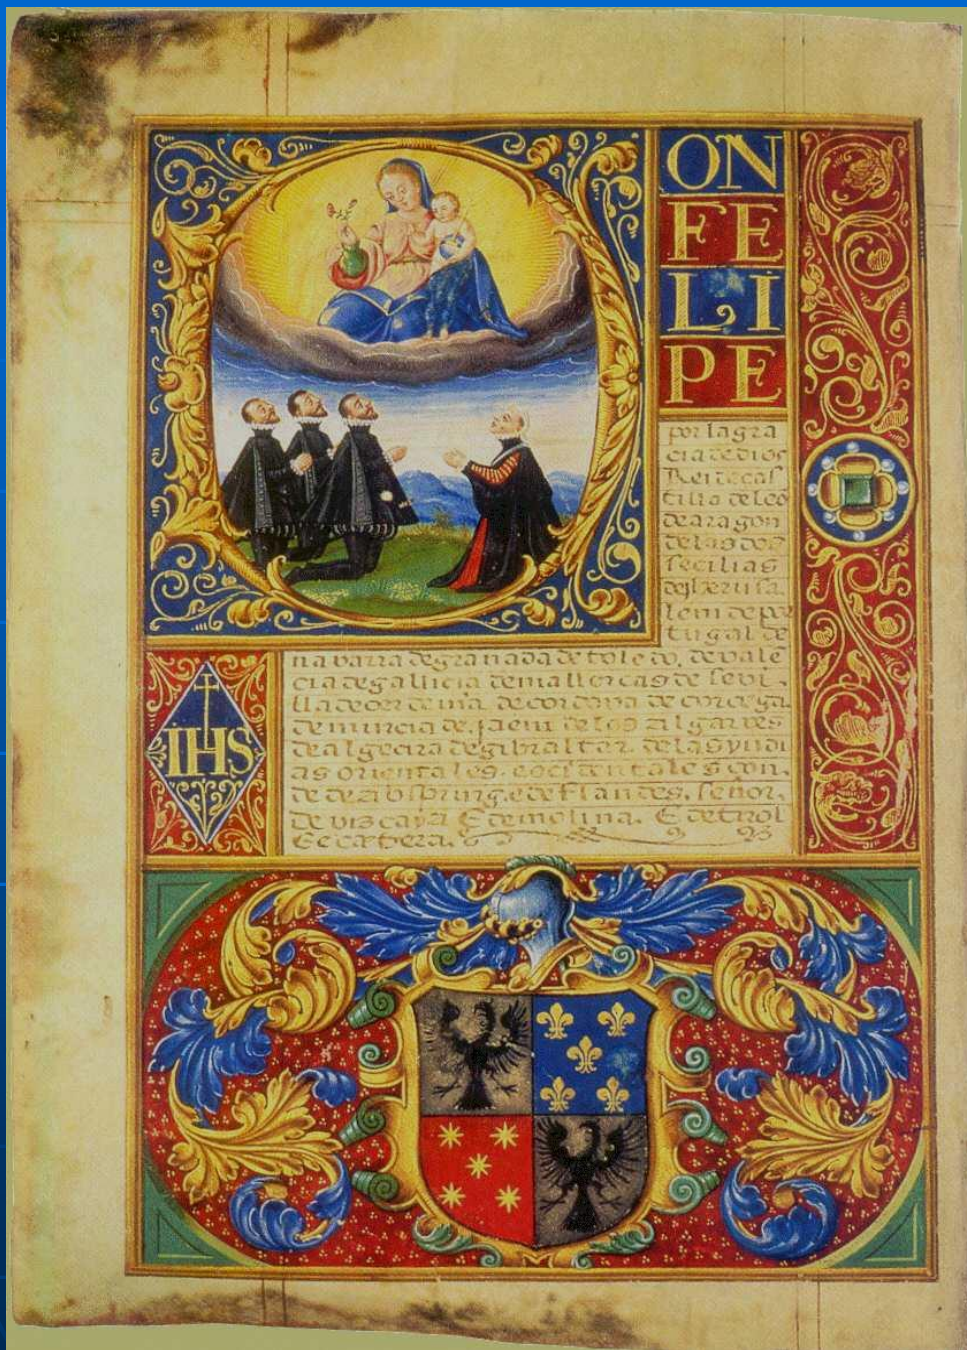 ON
FE
LI
PE
por la gra
cia de dios
Rei de cas
tilla de leō
de aragon
de las dos
secilias
de Jherusa
lem de por
tugal de
navarra de granada de toledo, de valē
cia de gallicia de mallorcas de sevi
lla de cerdeña de cordova de corcega
de murcia de jaen de los algarves
de algecira de gibraltar de las yndi
as orientales occidentales con
de de abspurg e de flandes, señor,
de vizcaya E de molina. E de tirol
Ecætera.
IHS